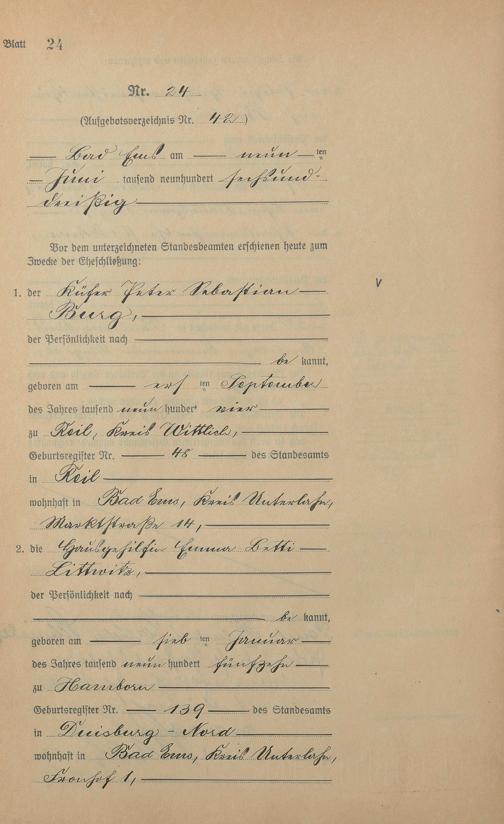 Blatt 24
Nr. 24
(Aufgebotsverzeichnis Nr. 42)
Bad Ems am neun ten
Juni tausend neunhundert sechsund-
dreißig
Vor dem unterzeichneten Standesbeamten erschienen heute zum
Zwecke der Eheschließung:
1. der Küfer Peter Sebastian
Burg,
der Persönlichkeit nach
be kannt,
geboren am ers ten September
des Jahres tausend neun hundert vier
zu Reil, Kreis Wittlich,
Geburtsregister Nr. 48 des Standesamts
in Reil
wohnhaft in Bad Ems, Kreis Unterlahn,
Marktstraße 14,
2. die Hausgehilfin Emma Betti
Littwitz,
der Persönlichkeit nach
be kannt,
geboren am sieb ten Januar
des Jahres tausend neun hundert fünfzehn
zu Hamborn
Geburtsregister Nr. 139 des Standesamts
in Duisburg - Nord
wohnhaft in Bad Ems, Kreis Unterlahn,
Fronhof 1,